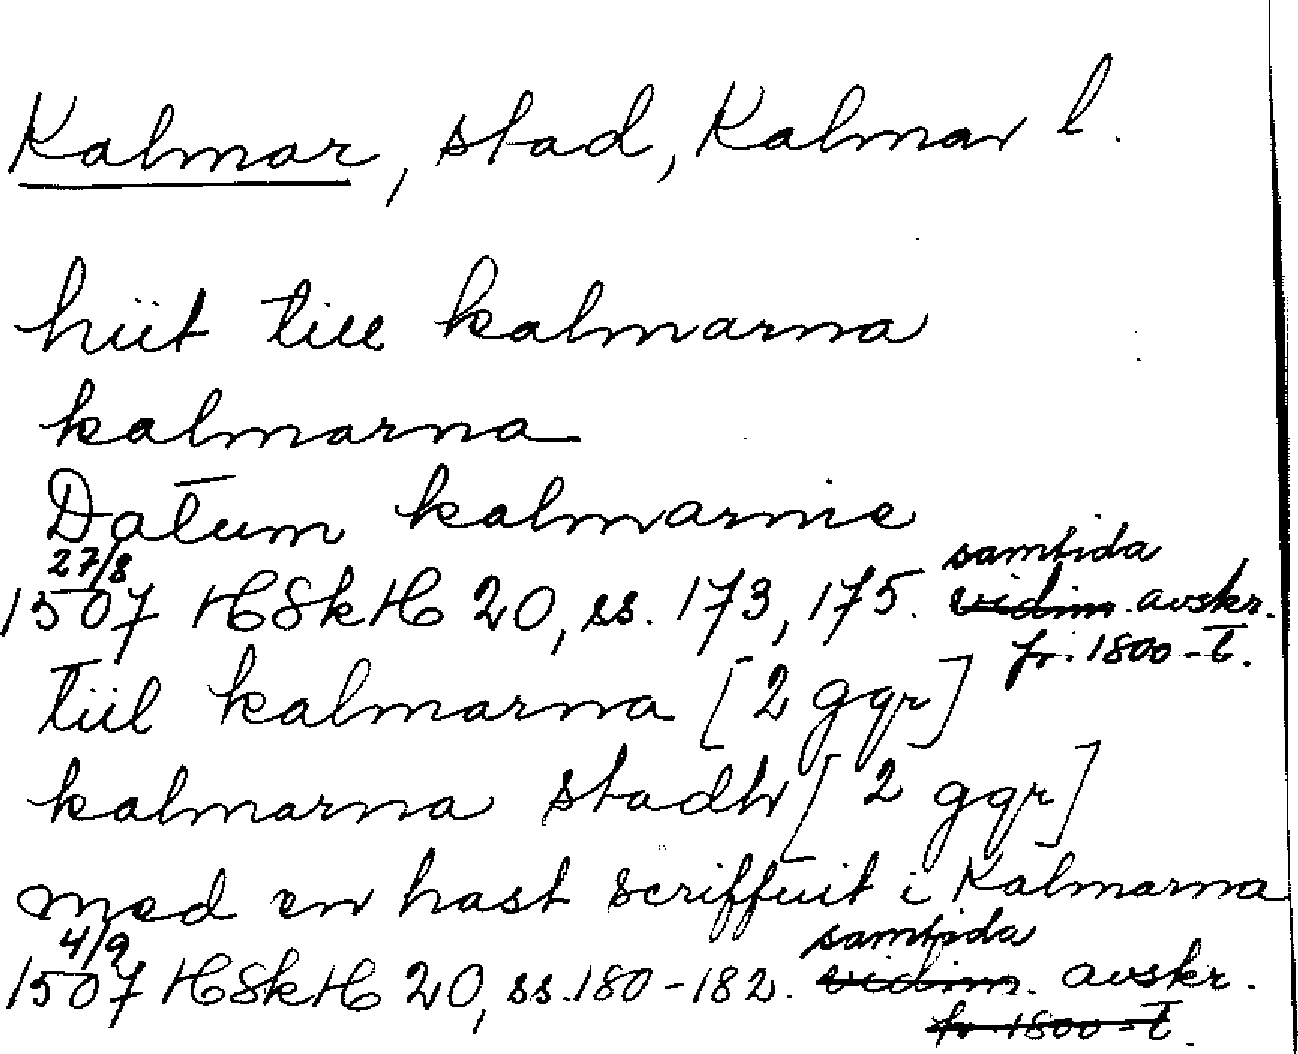 Kalmar, stad, Kalmar l.
hiit till kalmarna
kalmarna
Datum kalmarnie
27/8 samtida
1507 HSkH 20, ss. 173, 175. vidim. avskr.
fr. 1800-t.
tiil kalmarna [2 ggr]
kalmarna stadh [2 ggr]
med en hast scriffuit i Kalmarna
4/9 samtida
1507 HSkH 20, ss. 180-182. vidim. avskr.
fr. 1800-t.